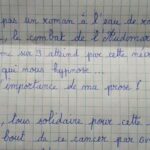 pas un roman à l'eau de ro
, le combat de l'Audomar
me sur 3 atteint par cette mé
qui nous hypnose...
importance de ma prose !
, tous solidaire pour cette
bout de ce cancer par